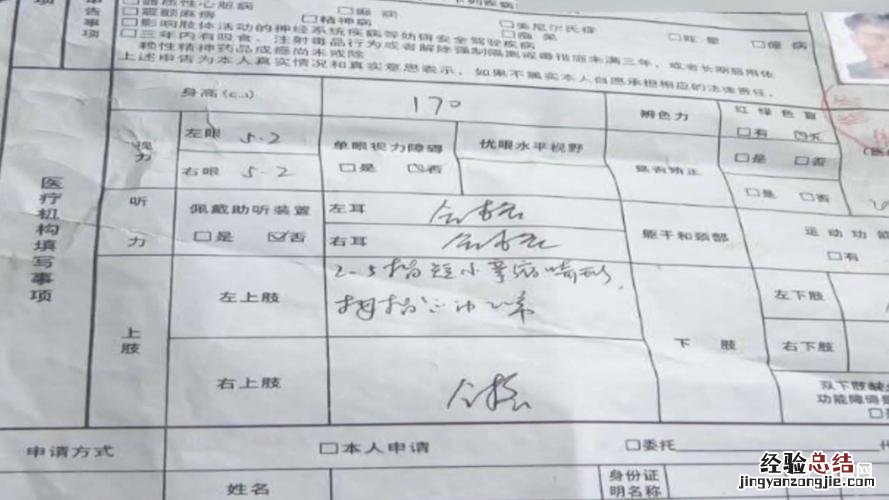 项
告
事
项
下列疾病
□器质性心脏病
□癫痫
□美尼尔氏症
□眩晕
□癔病
□震颤麻痹
□精神病
□痴呆
□影响肢体活动的神经系统疾病等妨碍安全驾驶疾病
□三年内有吸食、注射毒品行为或者解除强制隔离戒毒措施未满三年,或者长期服用依
赖性精神药品成瘾尚未戒除
上述申告为本人真实情况和真实意思表示,如果不属实本人自愿承担相应的法律责任。
医疗机构填写事项
身高(cm)
170
辨色力
红绿色盲
□有 ☑无
视力
左眼 5.2
右眼 5.2
单眼视力障碍
□是 ☑否
优眼水平视野
是否矫正
□是 □否
□是 □否
听力
佩戴助听装置
□是 ☑否
左耳 合格
右耳 合格
躯干和颈部
运动功能
□有
上肢
左上肢
2-5指短小
拇指
右上肢
合格
下肢
左下肢
右下肢
双下肢缺
功能障碍
申请方式
□本人申请
□委托
代
姓名
身份证
明名称
经验总结
jingyanzongjie.com